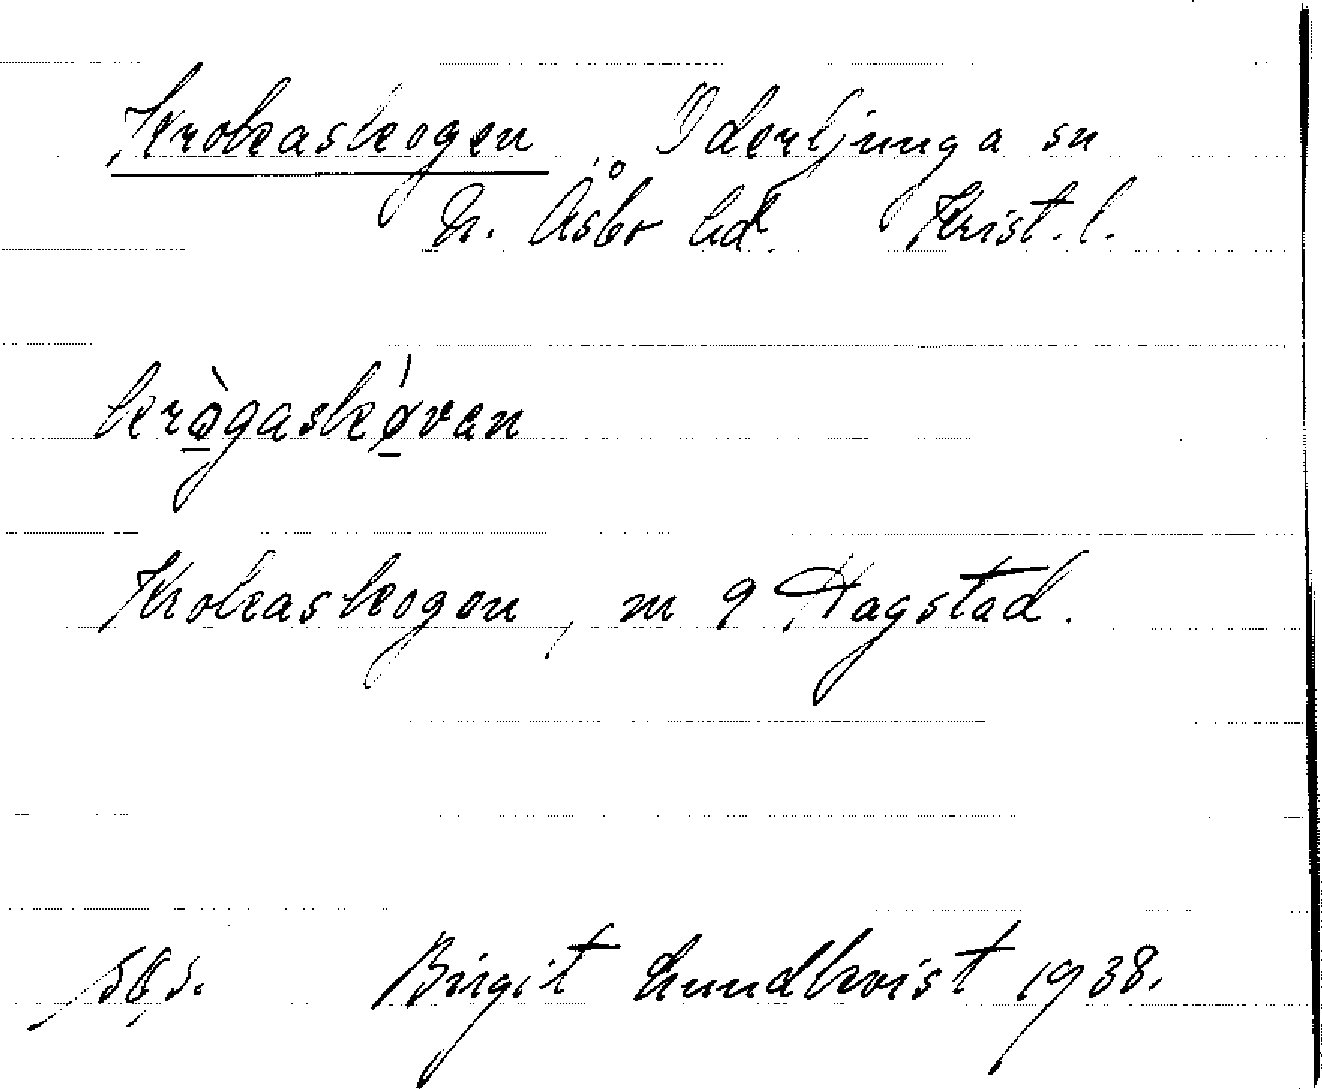 Krokaskogen Oderljunga sn
N. Åsbo hd. Krist. l.
krògaskóvan
Krokaskogen, m 9 Hagstad.
Birgit Lundkvist 1938.